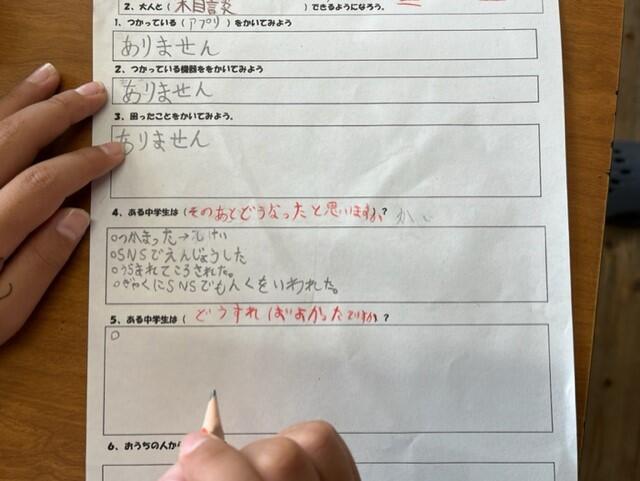 2、大人と( 相談 )できるようになろう。
1、つかっている(アプリ)をかいてみよう
ありません
2、つかっている機器ををかいてみよう
ありません
3、困ったことをかいてみよう。
ありません
4、ある中学生は(そのあとどうなったと思いますか)?
○つかまった→
○SNSでえんじょうした
○うらまれてころされた。
○ぎゃくにSNSでもんくをいわれた。
5、ある中学生は( どうすればよかったですか)?
○
6、おうちの人から